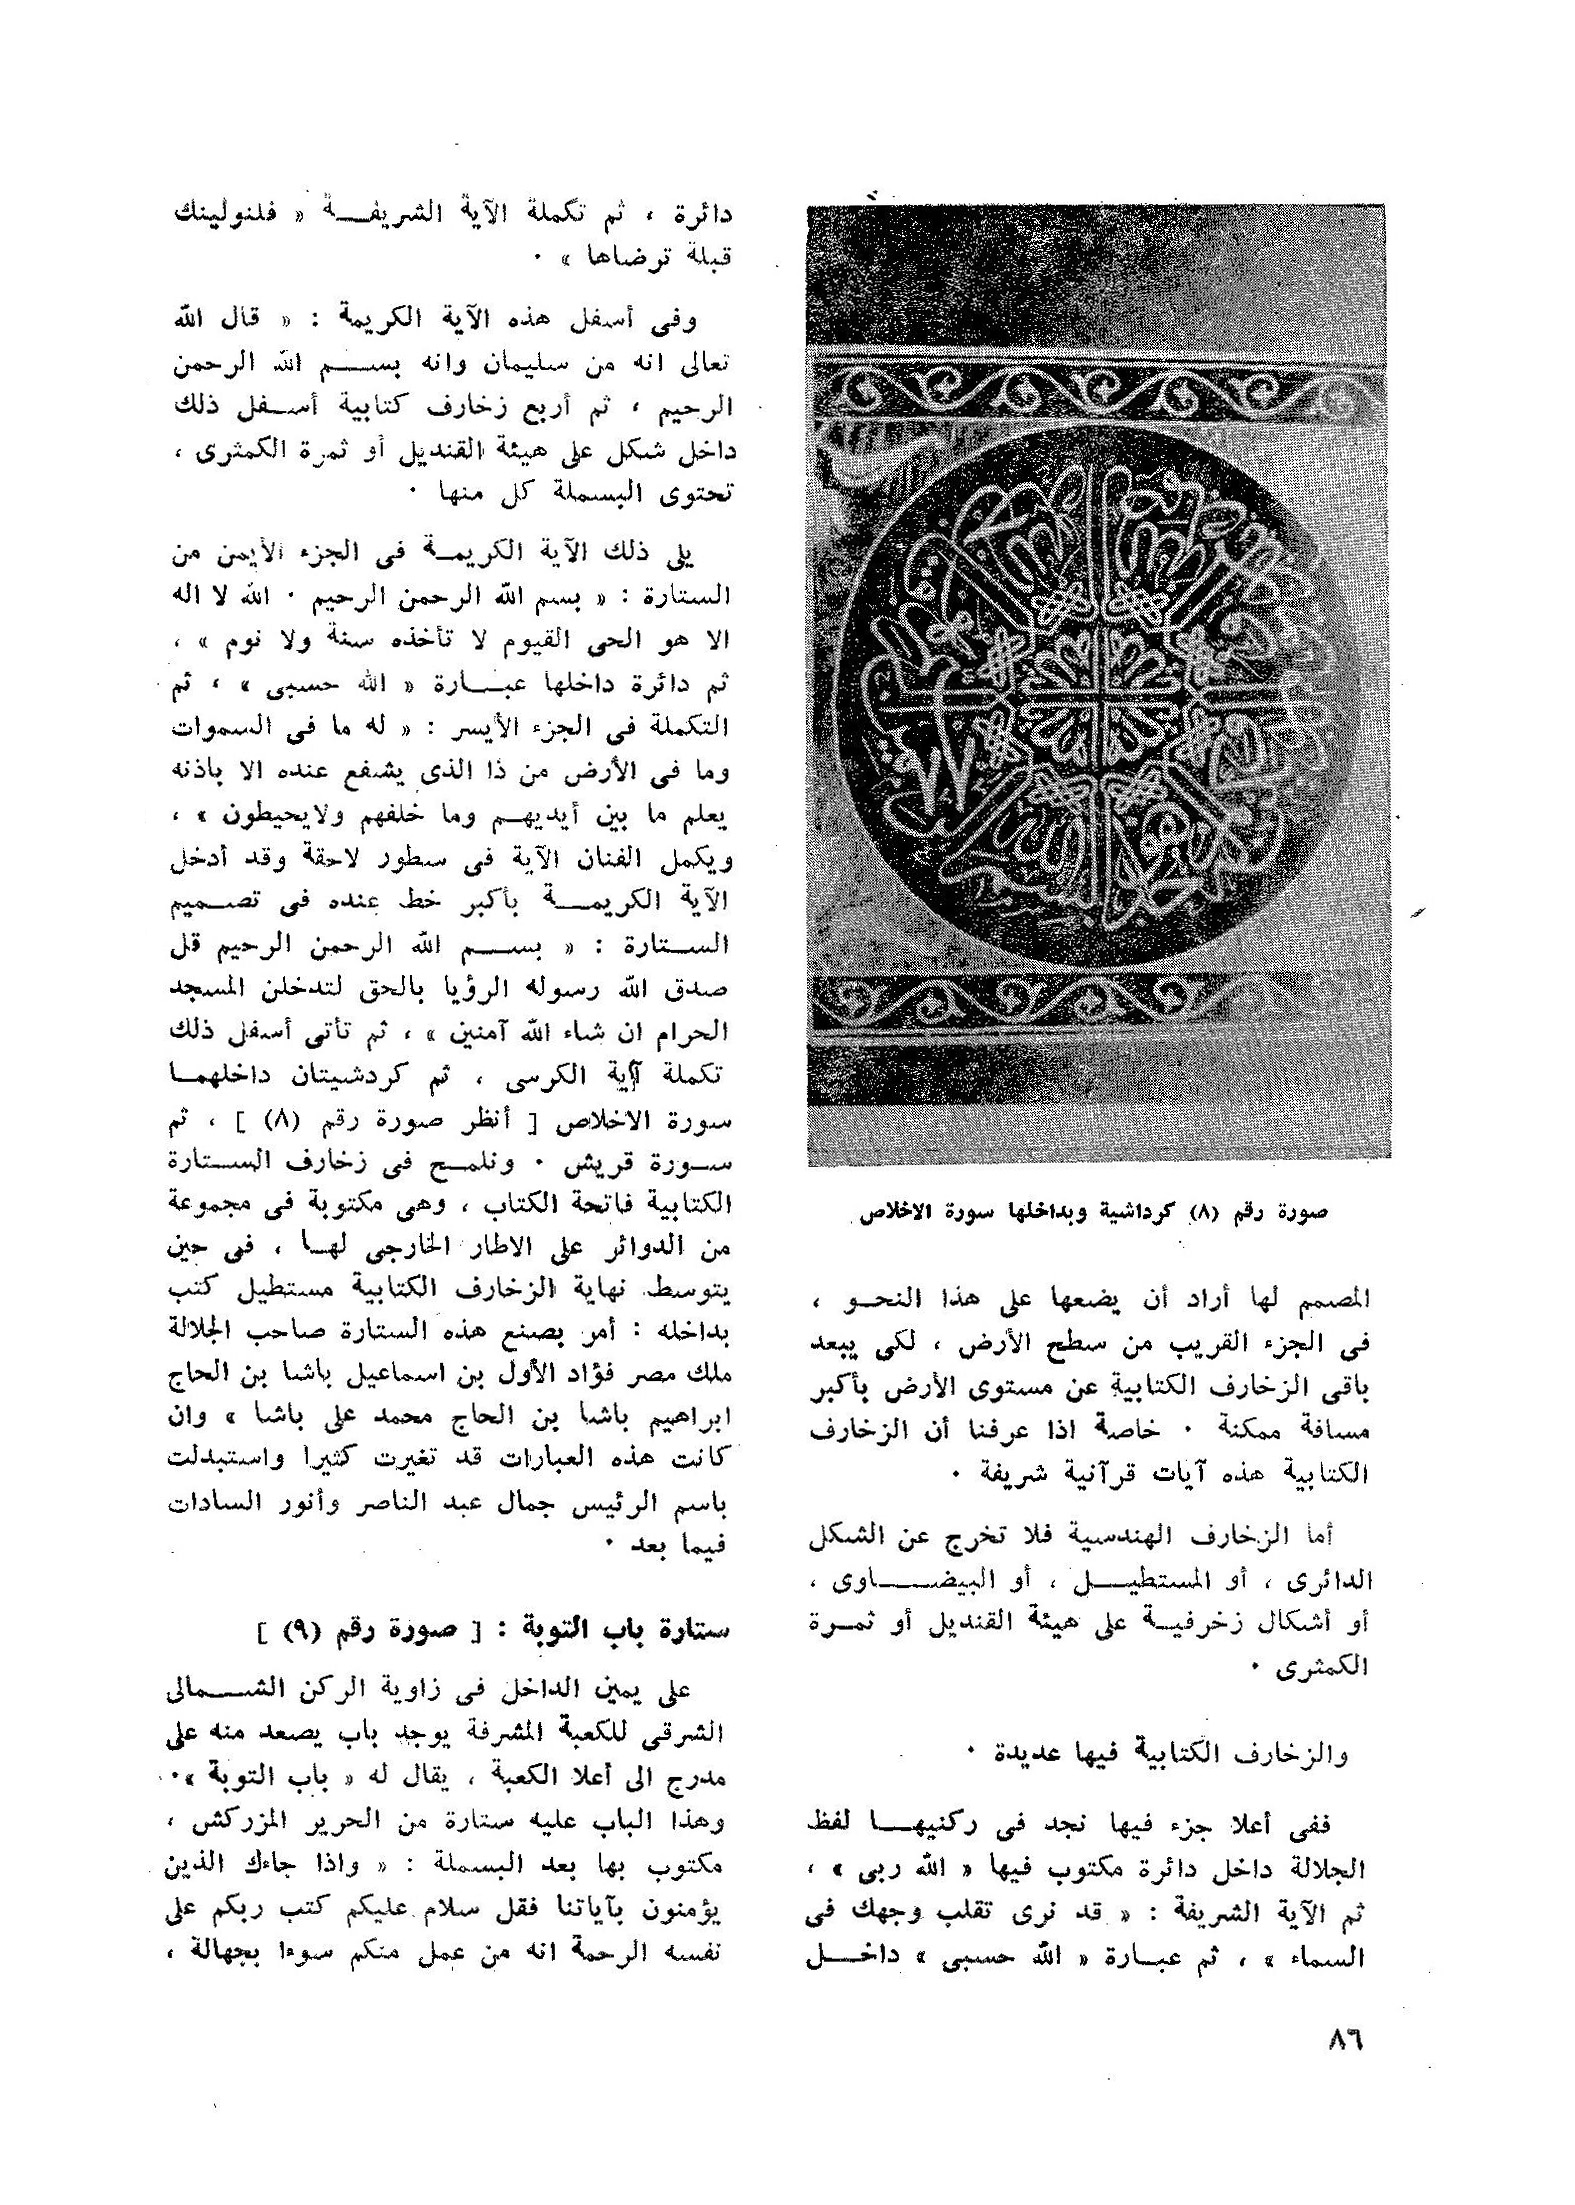 صورة رقم (٨) كرداشية وبداخلها سورة الاخلاص
المصمم لها أراد أن يضعها على هذا النحو ،
فى الجزء القريب من سطح الأرض ، لكى يبعد
باقى الزخارف الكتابية عن مستوى الأرض بأكبر
مسافة ممكنة . خاصة اذا عرفنا أن الزخارف
الكتابية هذه آيات قرآنية شريفة .
أما الزخارف الهندسية فلا تخرج عن الشكل
الدائرى ، أو المستطيل ، أو البيضاوى ،
أو أشكال زخرفية على هيئة القنديل أو ثمرة
الكمثرى .
والزخارف الكتابية فيها عديدة .
ففى أعلا جزء فيها نجد فى ركنيها لفظ
الجلالة داخل دائرة مكتوب فيها « الله ربى » ،
ثم الآية الشريفة : « قد نرى تقلب وجهك فى
السماء » ، ثم عبارة « الله حسبى » داخل
دائرة ، ثم تكملة الآية الشريفة « فلنولينك
قبلة ترضاها » .
وفى أسفل هذه الآية الكريمة : « قال الله
تعالى انه من سليمان وانه بسم الله الرحمن
الرحيم ، ثم أربع زخارف كتابية أسفل ذلك
داخل شكل على هيئة القنديل أو ثمرة الكمثرى ،
تحتوى البسملة كل منها .
يلى ذلك الآية الكريمة فى الجزء الأيمن من
الستارة : « بسم الله الرحمن الرحيم . الله لا اله
الا هو الحى القيوم لا تأخذه سنة ولا نوم » ،
ثم دائرة داخلها عبارة « الله حسبى » ، ثم
التكملة فى الجزء الأيسر : « له ما فى السموات
وما فى الأرض من ذا الذى يشفع عنده الا باذنه
يعلم ما بين أيديهم وما خلفهم ولايحيطون » ،
ويكمل الفنان الآية فى سطور لاحقة وقد أدخل
الآية الكريمة بأكبر خط عنده فى تصميم
الستارة : « بسم الله الرحمن الرحيم قل
صدق الله رسوله الرؤيا بالحق لتدخلن المسجد
الحرام ان شاء الله آمنين » ، ثم تأتى أسفل ذلك
تكملة آية الكرسى ، ثم كردشيتان داخلهما
سورة الاخلاص [ أنظر صورة رقم (٨) ] ، ثم
سورة قريش . ونلمح فى زخارف الستارة
الكتابية فاتحة الكتاب ، وهى مكتوبة فى مجموعة
من الدوائر على الاطار الخارجى لها ، فى حين
يتوسط نهاية الزخارف الكتابية مستطيل كتب
بداخله : أمر بصنع هذه الستارة صاحب الجلالة
ملك مصر فؤاد الأول بن اسماعيل باشا بن الحاج
ابراهيم باشا بن الحاج محمد على باشا » وان
كانت هذه العبارات قد تغيرت كثيرا واستبدلت
باسم الرئيس جمال عبد الناصر وأنور السادات
فيما بعد .
ستارة باب التوبة : [ صورة رقم (٩) ]
على يمين الداخل فى زاوية الركن الشمالى
الشرقى للكعبة المشرفة يوجد باب يصعد منه على
مدرج الى أعلا الكعبة ، يقال له « باب التوبة ».
وهذا الباب عليه ستارة من الحرير المزركش ،
مكتوب بها بعد البسملة : « واذا جاءك الذين
يؤمنون بآياتنا فقل سلام عليكم كتب ربكم على
نفسه الرحمة انه من عمل منكم سوءا بجهالة ،
٨٦